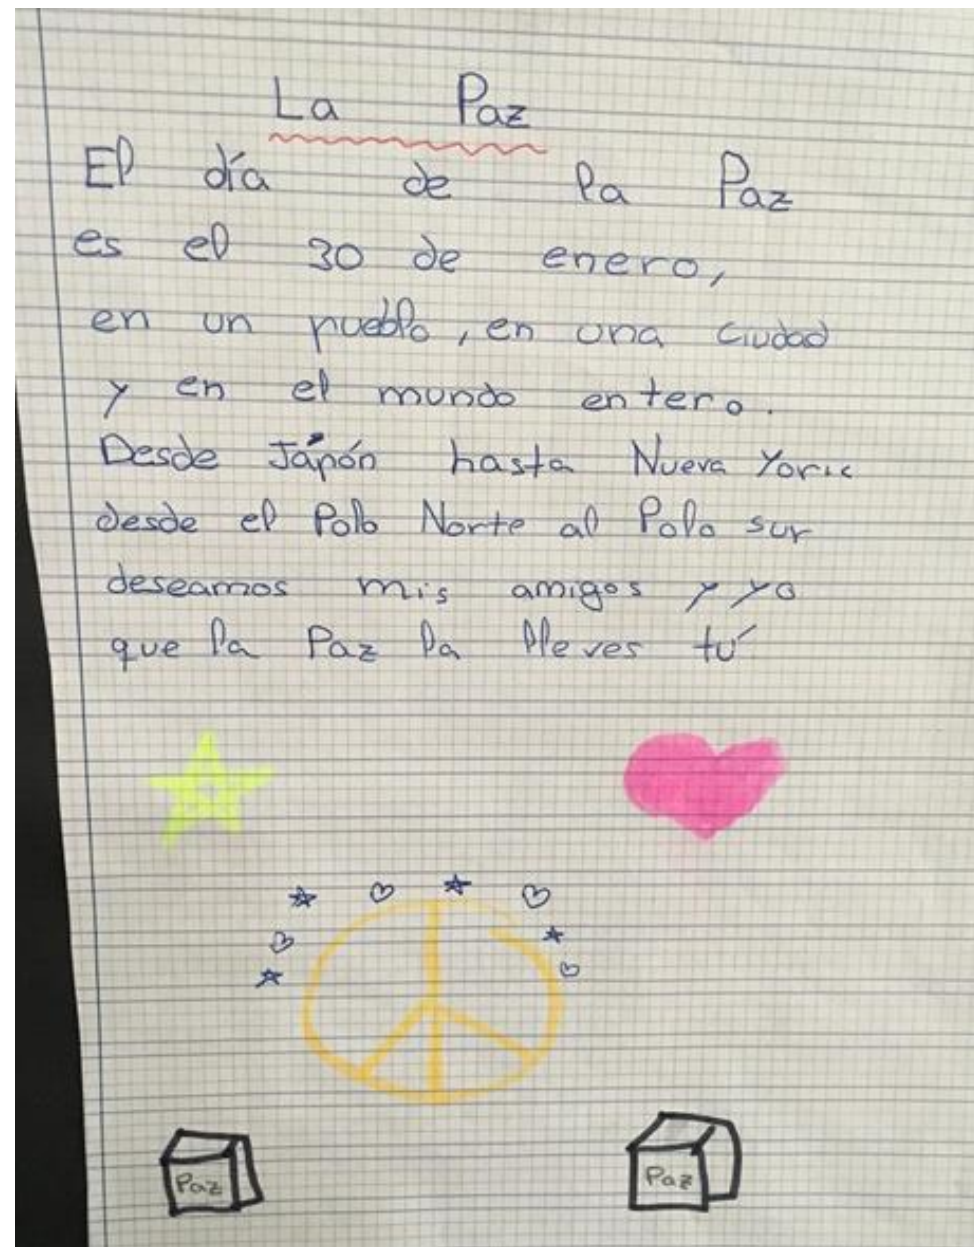 La Paz
El día de la Paz
es el 30 de enero,
en un pueblo, en una ciudad
y en el mundo entero.
Desde Japón hasta Nueva Yorik
desde el Polo Norte al Polo sur
deseamos mis amigos y yo
que la Paz la lleves tú
Paz
Paz